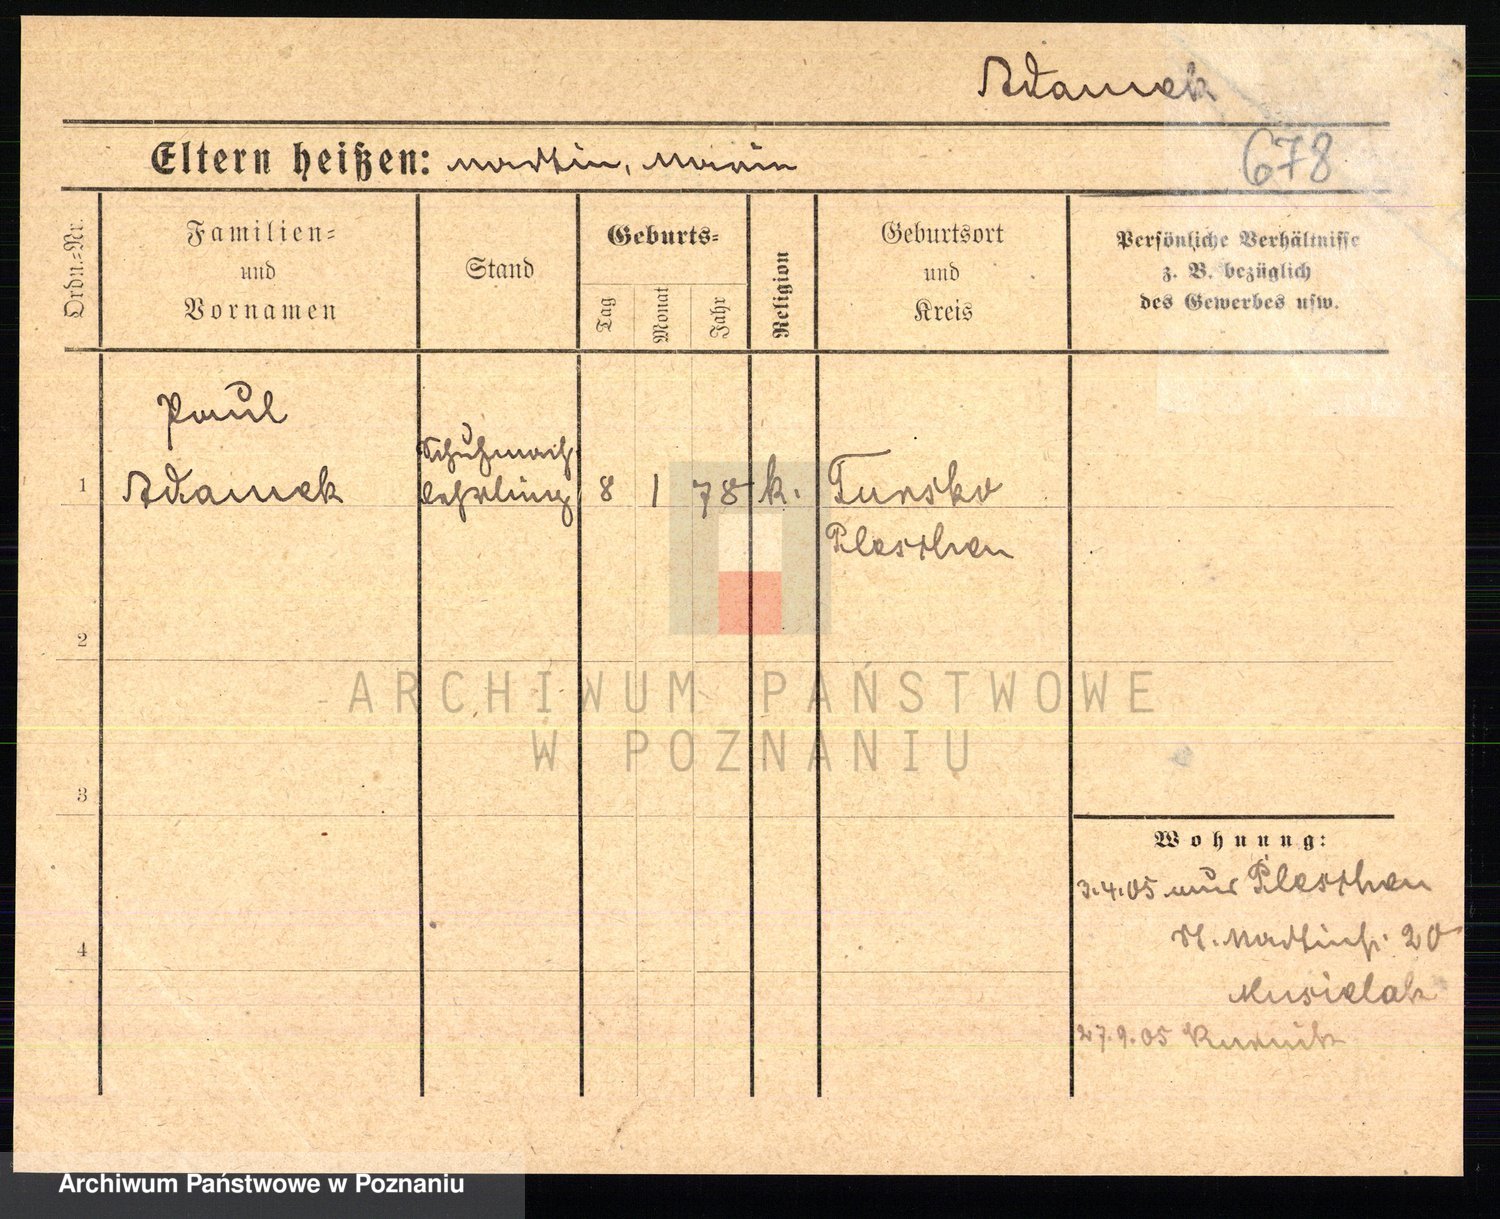 Adamek
Eltern heißen: Martin, Marie
678
Ordn.-Nr.
Familien-
und
Vornamen
Stand
Geburts-
Tag
Monat
Jahr
Religion
Geburtsort
und
Kreis
Persönliche Verhältnisse
z. B. bezüglich
des Gewerbes usw.
Paul
Schuhmach.
1 Adamek lehrling 8 1 78 k. Tursko
Pleschen
2
ARCHIWUM PAŃSTWOWE
W POZNANIU
3
Wohnung:
3.4.05 aus Pleschen
4
St. Martinstr. 20
Musielak
27.9.05 Kurnik
Archiwum Państwowe w Poznaniu